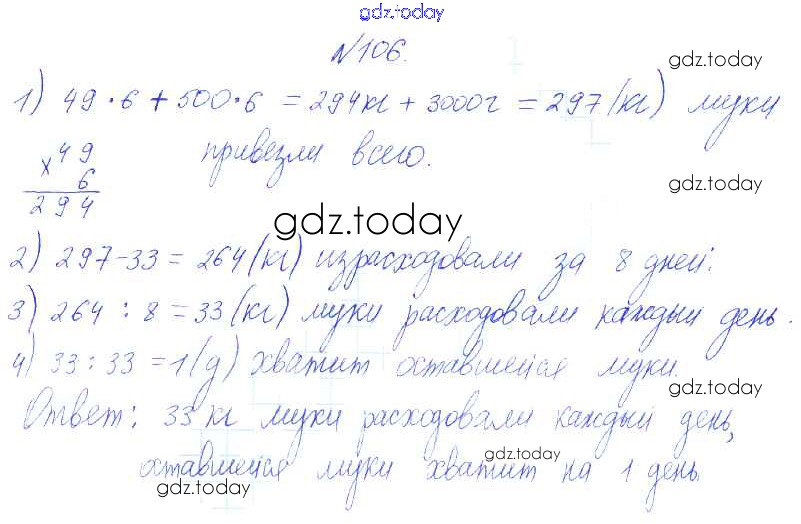 gdz.today
№106.
gdz.today
1) 49·6+500·6 = 294кг + 3000г = 297(кг) муки
привезли всего.
49
× 6
294
gdz.today
gdz.today
2) 297-33 = 264(кг) израсходовали за 8 дней.
3) 264 : 8 = 33(кг) муки расходовали каждый день.
4) 33 : 33 = 1(д) хватит оставшейся муки.
gdz.today
Ответ: 33 кг муки расходовали каждый день,
gdz.today
оставшейся муки хватит на 1 день.
gdz.today